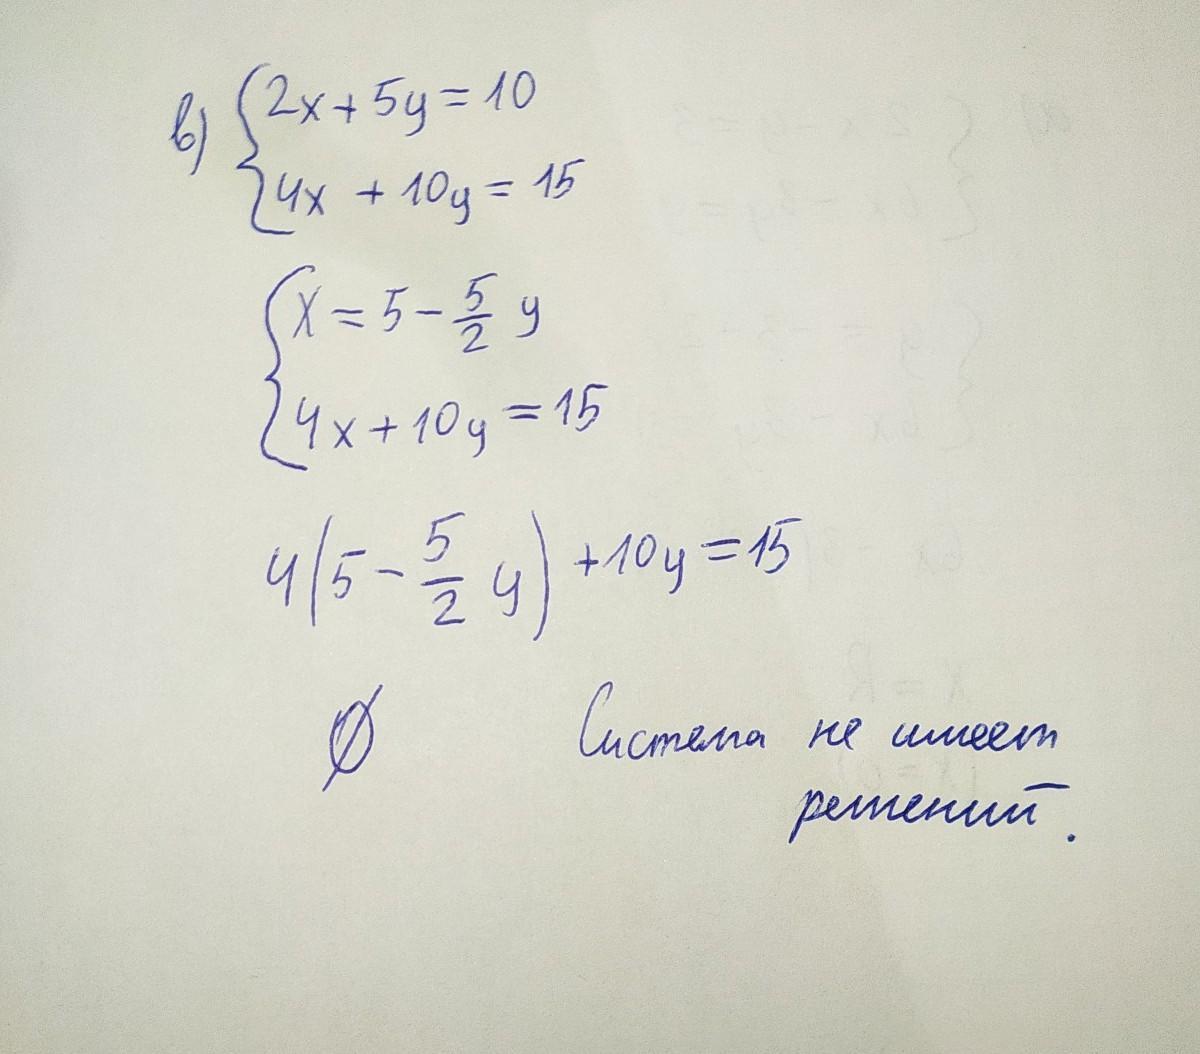 в) { 2x + 5y = 10
4x + 10y = 15
{ x = 5 - 5/2 y
4x + 10y = 15
4(5 - 5/2 y) + 10y = 15
∅ Система не имеет
решений.